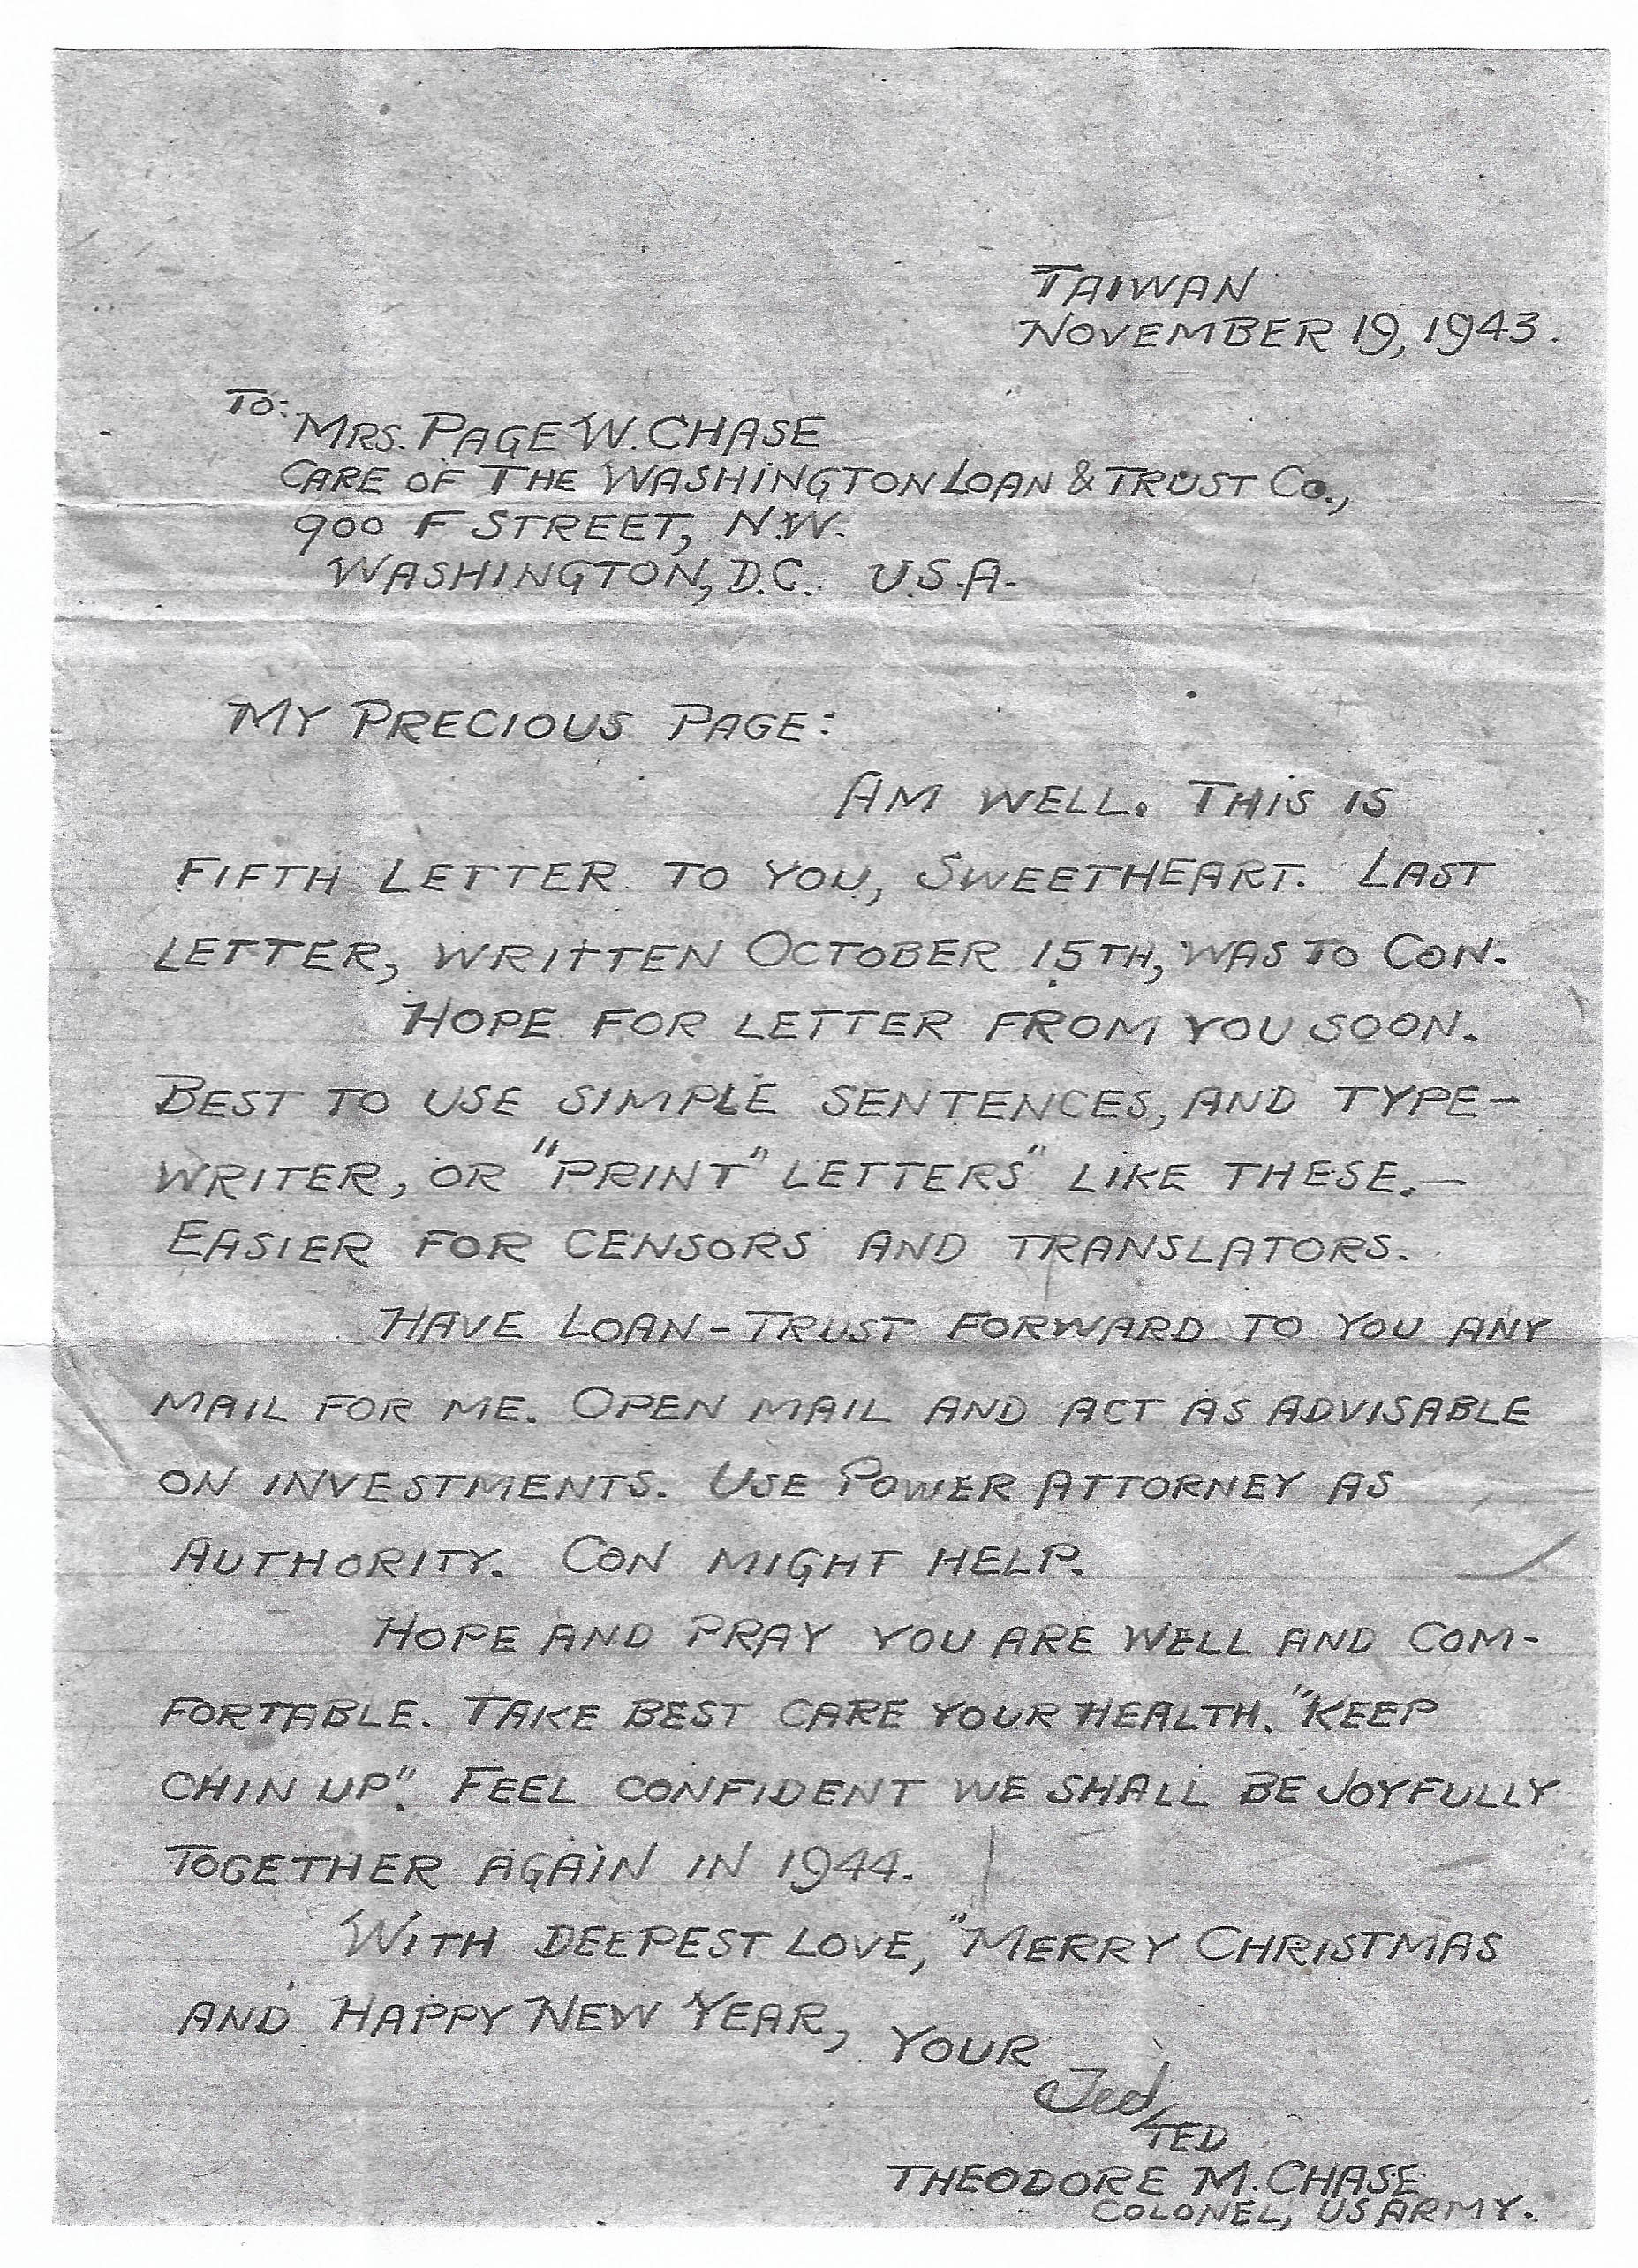 TAIWAN
NOVEMBER 19, 1943.
TO:
MRS. PAGE W. CHASE
CARE OF THE WASHINGTON LOAN & TRUST CO.,
900 F STREET, N.W.
WASHINGTON, D.C. U.S.A.
MY PRECIOUS PAGE:
AM WELL. THIS IS
FIFTH LETTER TO YOU, SWEETHEART. LAST
LETTER, WRITTEN OCTOBER 15TH, WAS TO CON.
HOPE FOR LETTER FROM YOU SOON.
BEST TO USE SIMPLE SENTENCES, AND TYPE-
WRITER, OR "PRINT" LETTERS" LIKE THESE.—
EASIER FOR CENSORS AND TRANSLATORS.
HAVE LOAN-TRUST FORWARD TO YOU ANY
MAIL FOR ME. OPEN MAIL AND ACT AS ADVISABLE
ON INVESTMENTS. USE POWER ATTORNEY AS
AUTHORITY. CON MIGHT HELP.
HOPE AND PRAY YOU ARE WELL AND COM-
FORTABLE. TAKE BEST CARE YOUR HEALTH. "KEEP
CHIN UP". FEEL CONFIDENT WE SHALL BE JOYFULLY
TOGETHER AGAIN IN 1944.
WITH DEEPEST LOVE, "MERRY CHRISTMAS
AND HAPPY NEW YEAR, YOUR
Ted
TED
THEODORE M. CHASE
COLONEL, US ARMY.